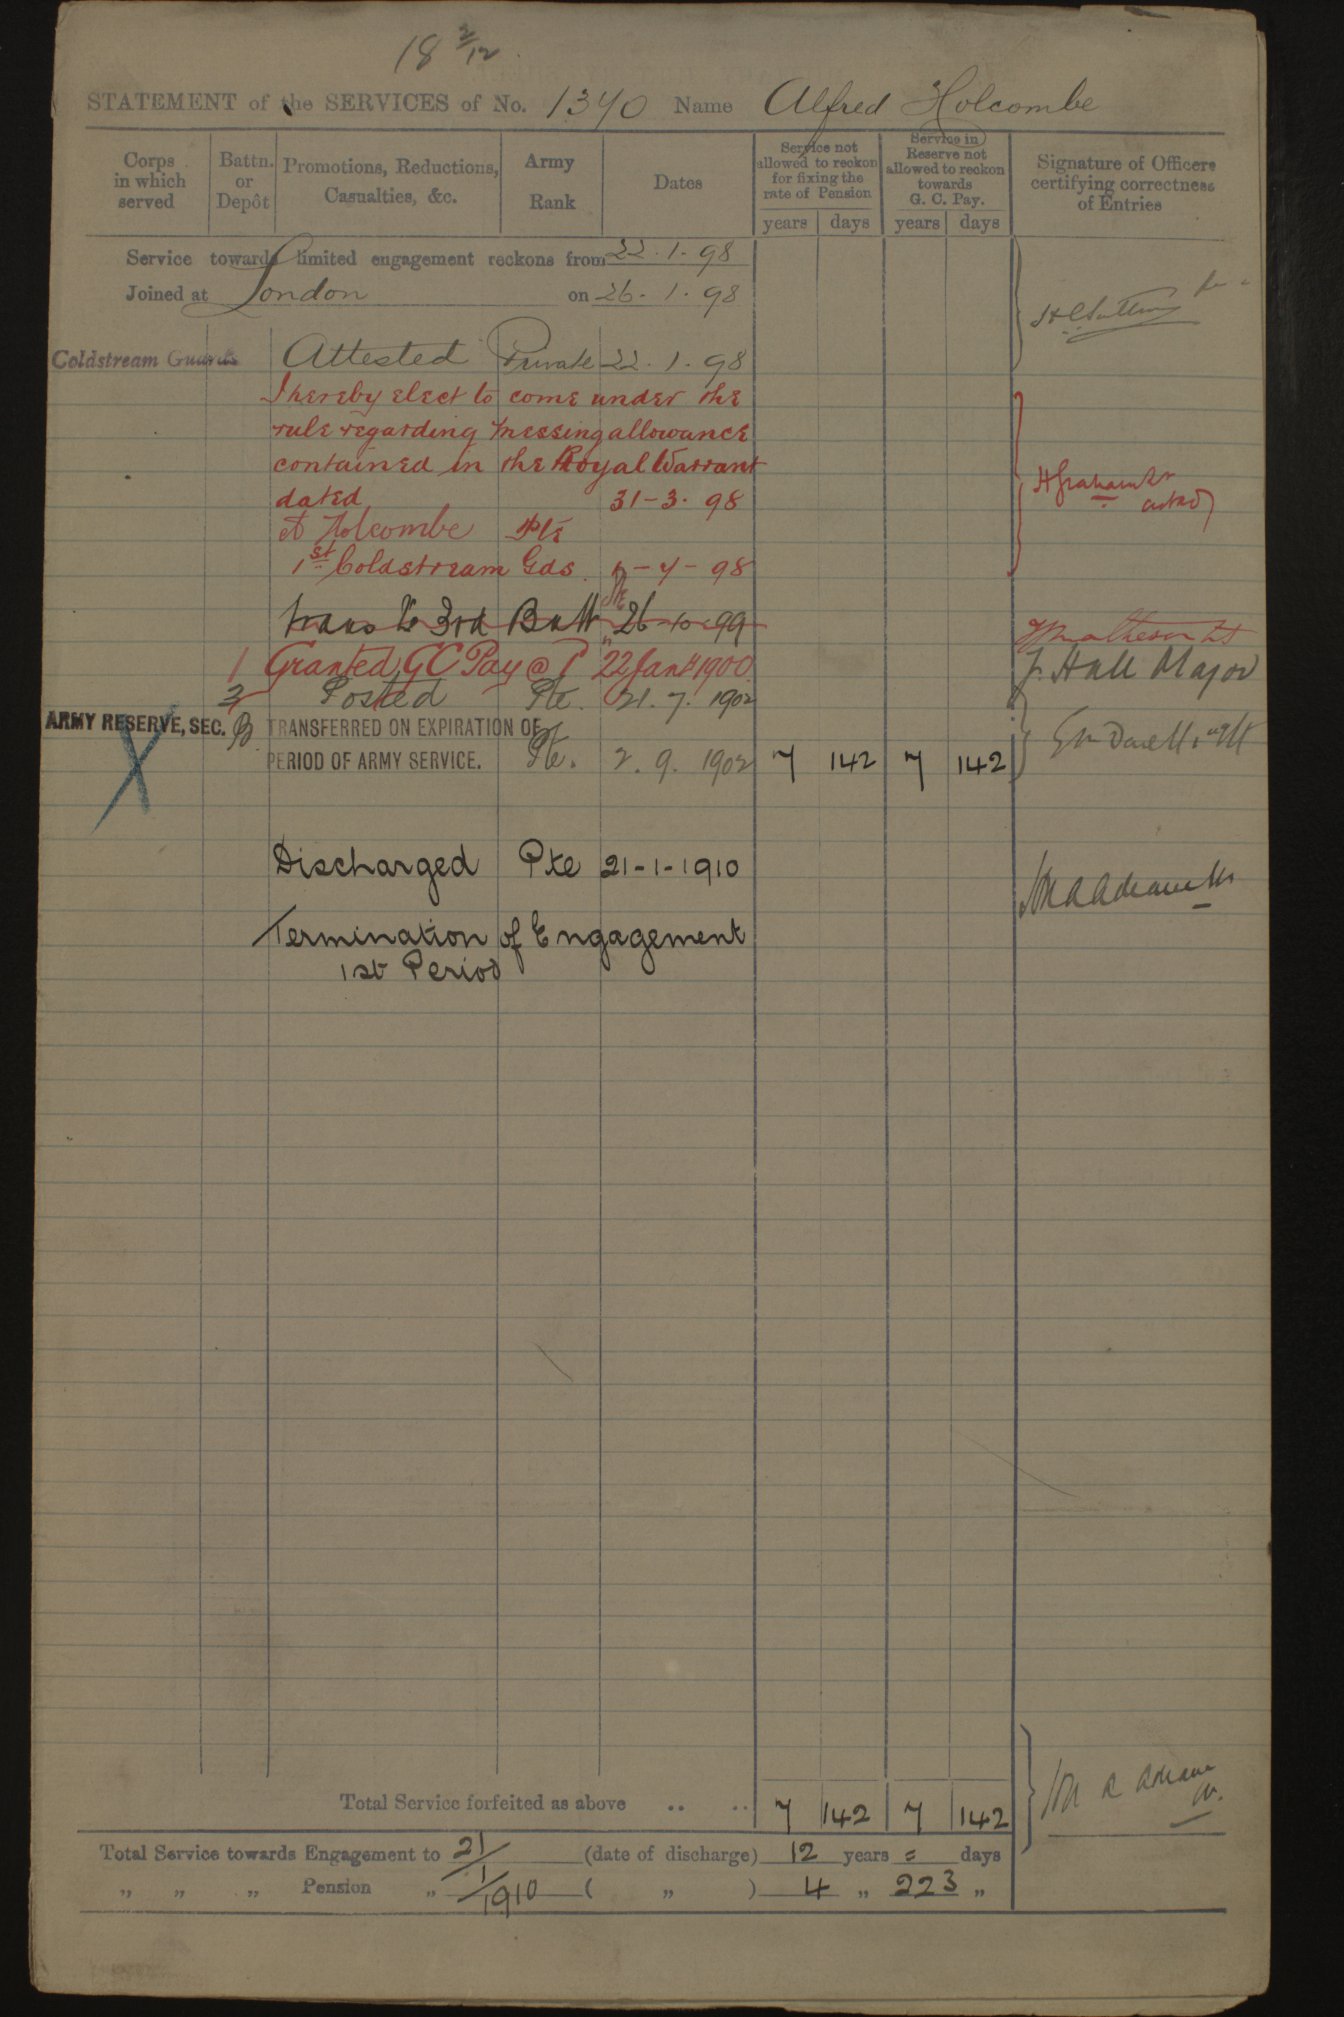 18 2/12
STATEMENT of the SERVICES of No. 1340 Name Alfred Holcombe
Corps in which served
Battn. or Depôt
Promotions, Reductions, Casualties, &c.
Army Rank
Dates
Service not allowed to reckon for fixing the rate of Pension
Service in Reserve not allowed to reckon towards G. C. Pay.
Signature of Officers certifying correctness of Entries
years days years days
Service towards limited engagement reckons from 22.1.98
Joined at London on 26.1.98
Coldstream Guards Attested Private 22.1.98
I hereby elect to come under the
rule regarding messing allowance
contained in the Royal Warrant
dated 31-3.98
A Holcombe Pte
1st Coldstream Gds -4-98
trans to 3rd Batt 26-10-99
1 Granted GC Pay @ 1 22 Jany 1900 J. Hall Major
3 Posted Pte. 21.7.1902
ARMY RESERVE, SEC. B TRANSFERRED ON EXPIRATION OF
PERIOD OF ARMY SERVICE. Pte. 2.9.1902 7 142 7 142
Discharged Pte 21-1-1910
Termination of Engagement
1st Period
Total Service forfeited as above .. .. 7 142 7 142
Total Service towards Engagement to 21/1/1910 (date of discharge) 12 years = days
„ „ „ Pension „ ( „ ) 4 „ 223 „